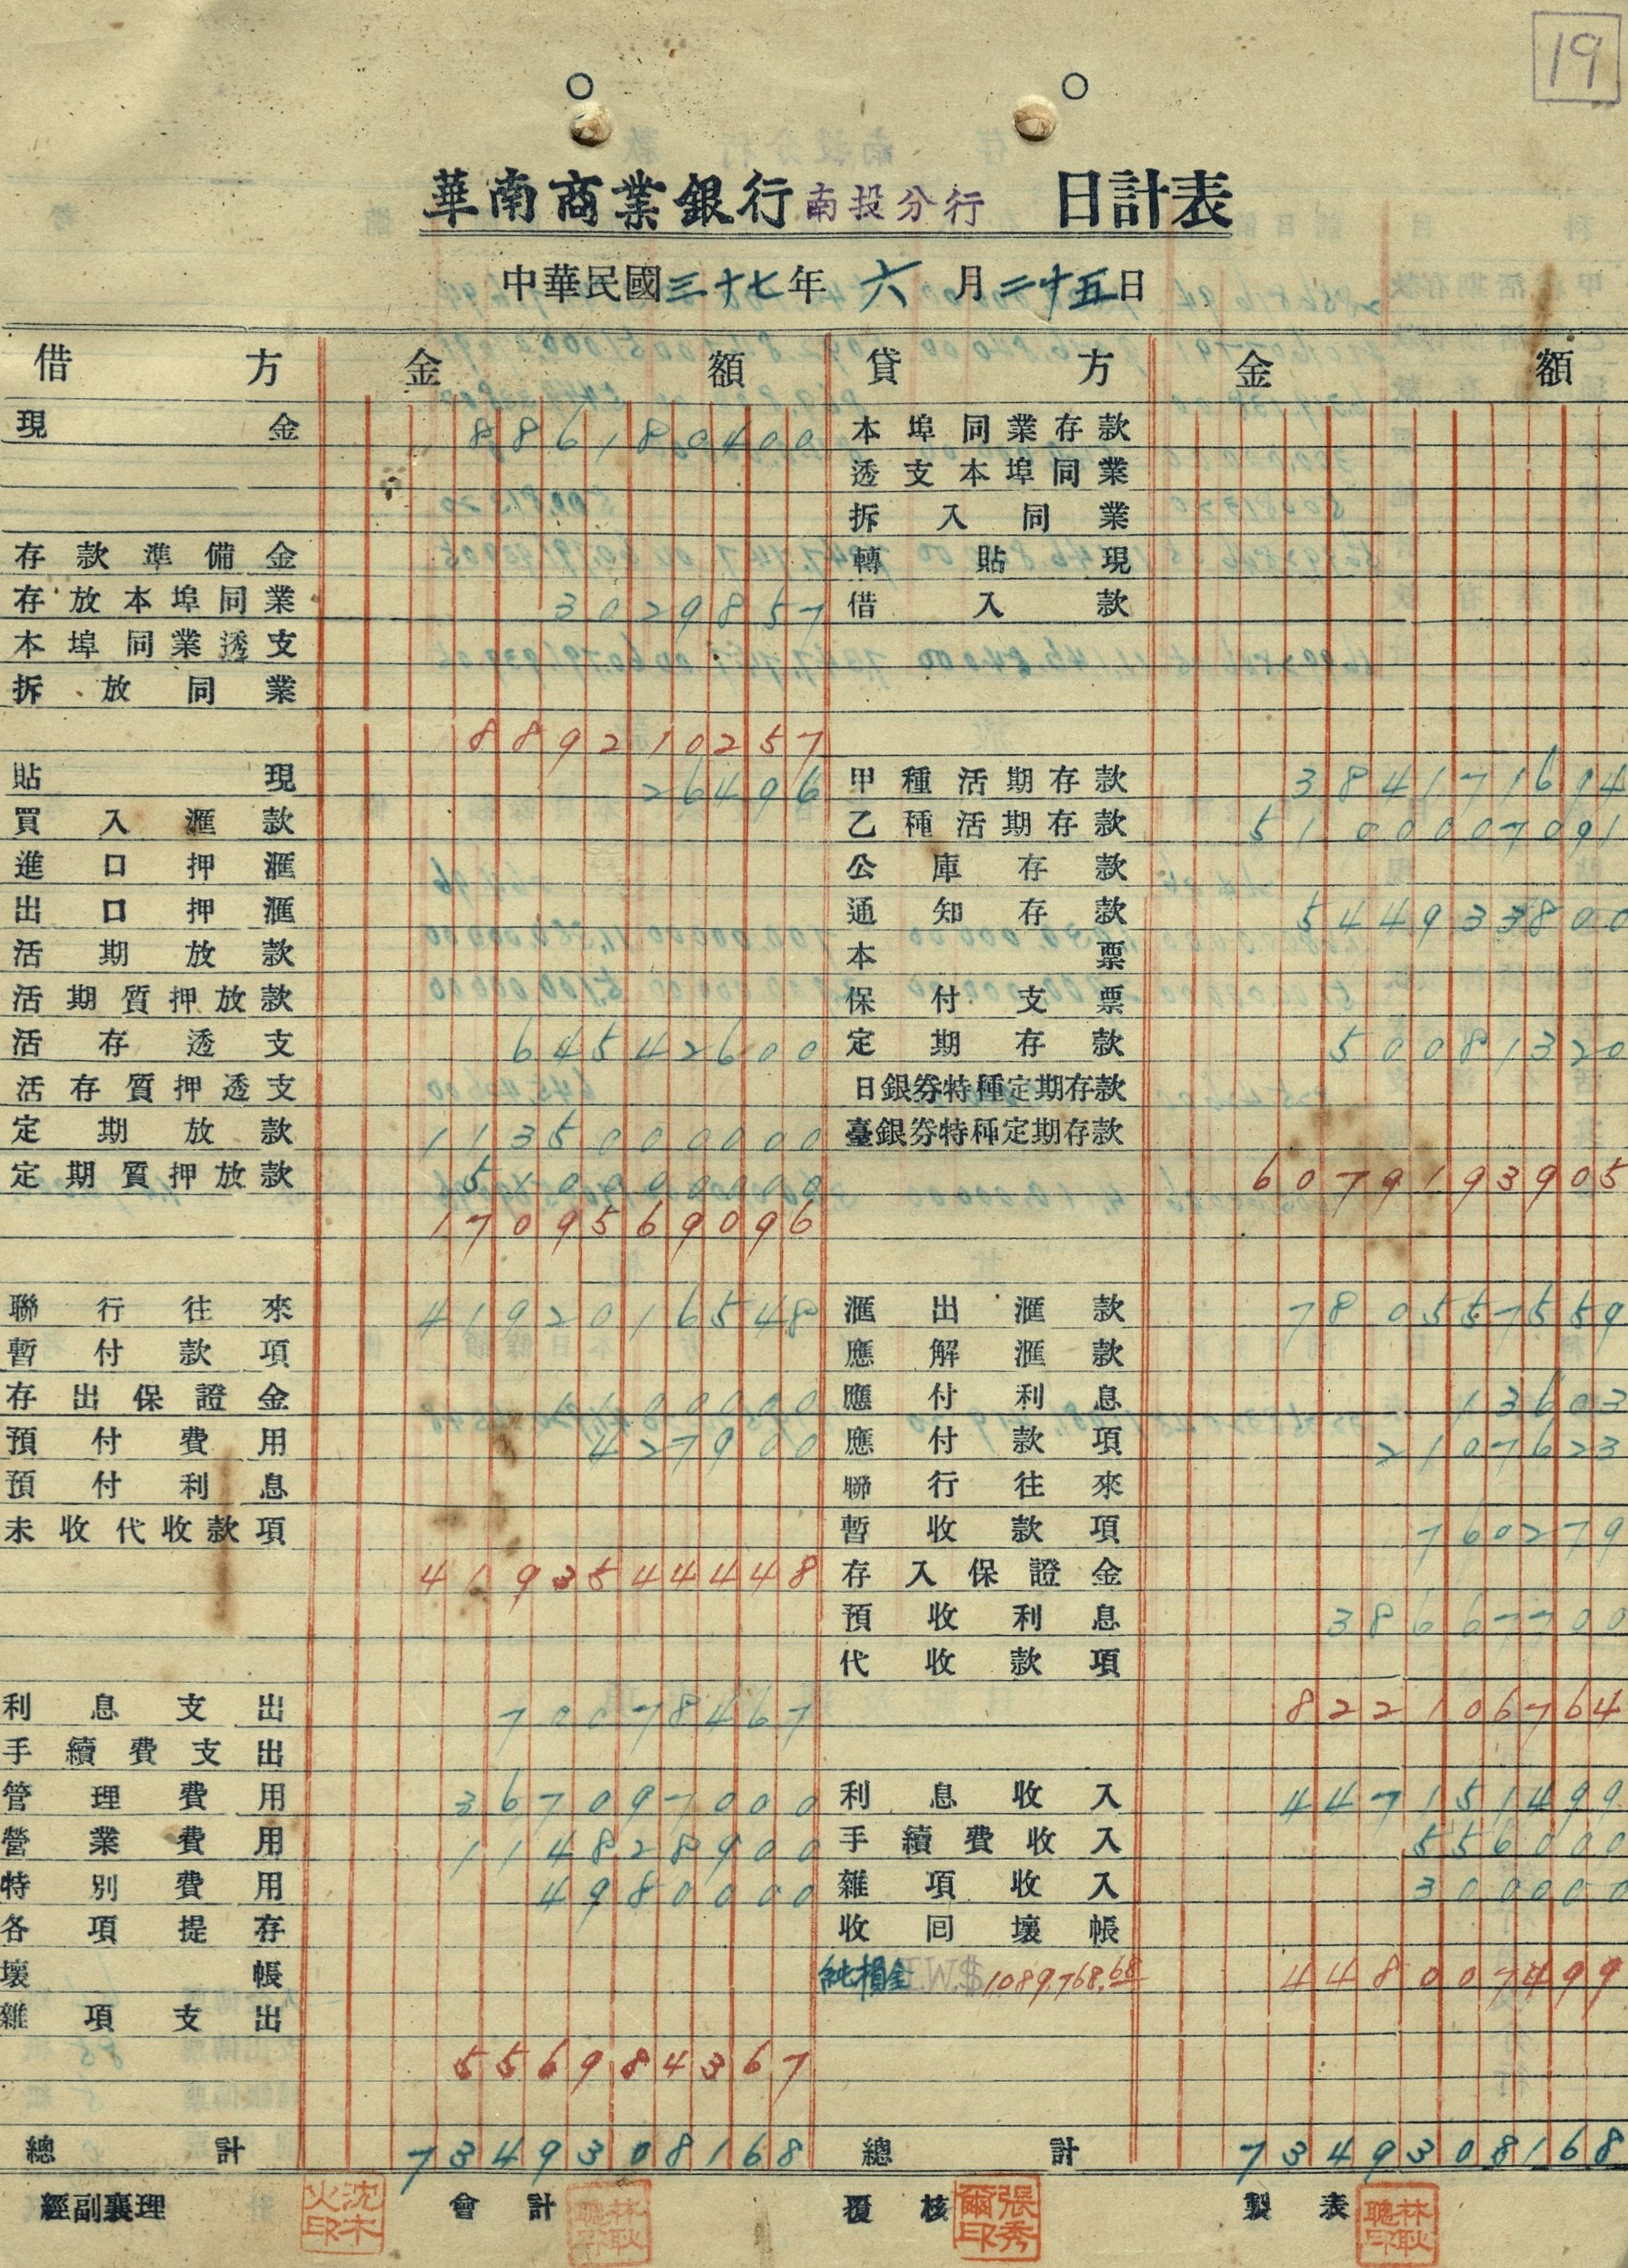 19
華南商業銀行南投分行 日計表
中華民國三十七年六月二十五日
借方 金額 貸方 金額
現金 886180400 本埠同業存款
透支本埠同業
拆入同業
存款準備金 轉貼現
存放本埠同業 3029857 借入款
本埠同業透支
拆放同業
889210257
貼現 26496 甲種活期存款 384171694
買入滙款 乙種活期存款 5100007091
進口押滙 公庫存款
出口押滙 通知存款 544933800
活期放款 本票
活期質押放款 保付支票
活存透支 64542600 定期存款 50081320
活存質押透支 日銀券特種定期存款
定期放款 1135000000 臺銀券特種定期存款
定期質押放款 510000000 6079193905
1709569096
聯行往來 4192016548 滙出滙款 780557559
暫付款項 應解滙款
存出保證金 1100000 應付利息 13603
預付費用 427900 應付款項 2107623
預付利息 聯行往來
未收代收款項 暫收款項 760279
4193544448 存入保證金
預收利息 38667700
代收款項
利息支出 70078467 822106764
手續費支出
管理費用 367097000 利息收入 447151499
營業費用 114828900 手續費收入 556000
特別費用 4980000 雜項收入 300000
各項提存 收回壞帳
壞帳 純損金 $1,089,768.68 448007499
雜項支出
556984367
總計 7349308168 總計 7349308168
經副襄理 會計 覆核 製表